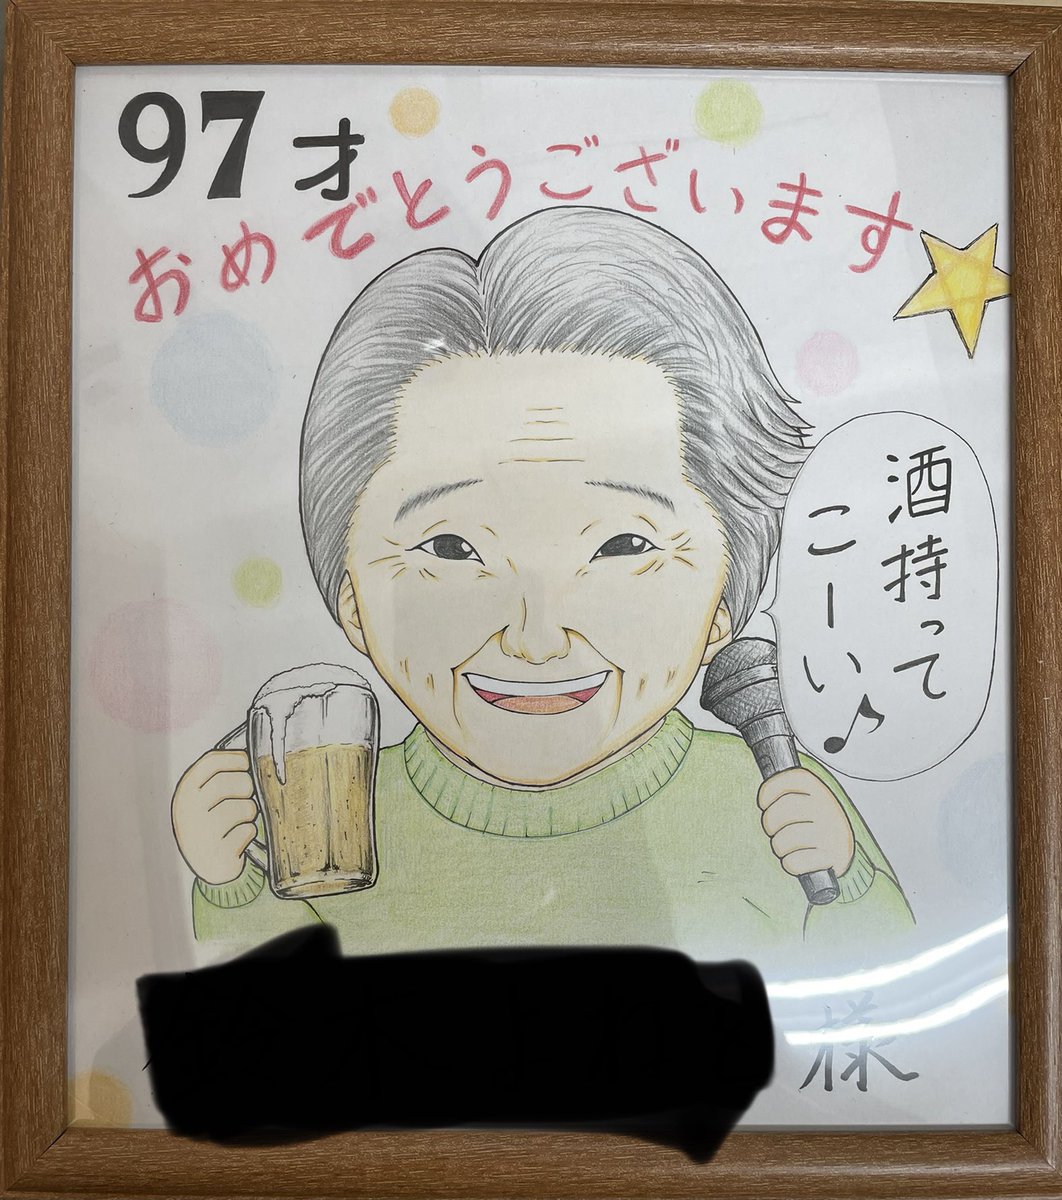 97才
おめでとうございます
酒持って
こーい♪
様